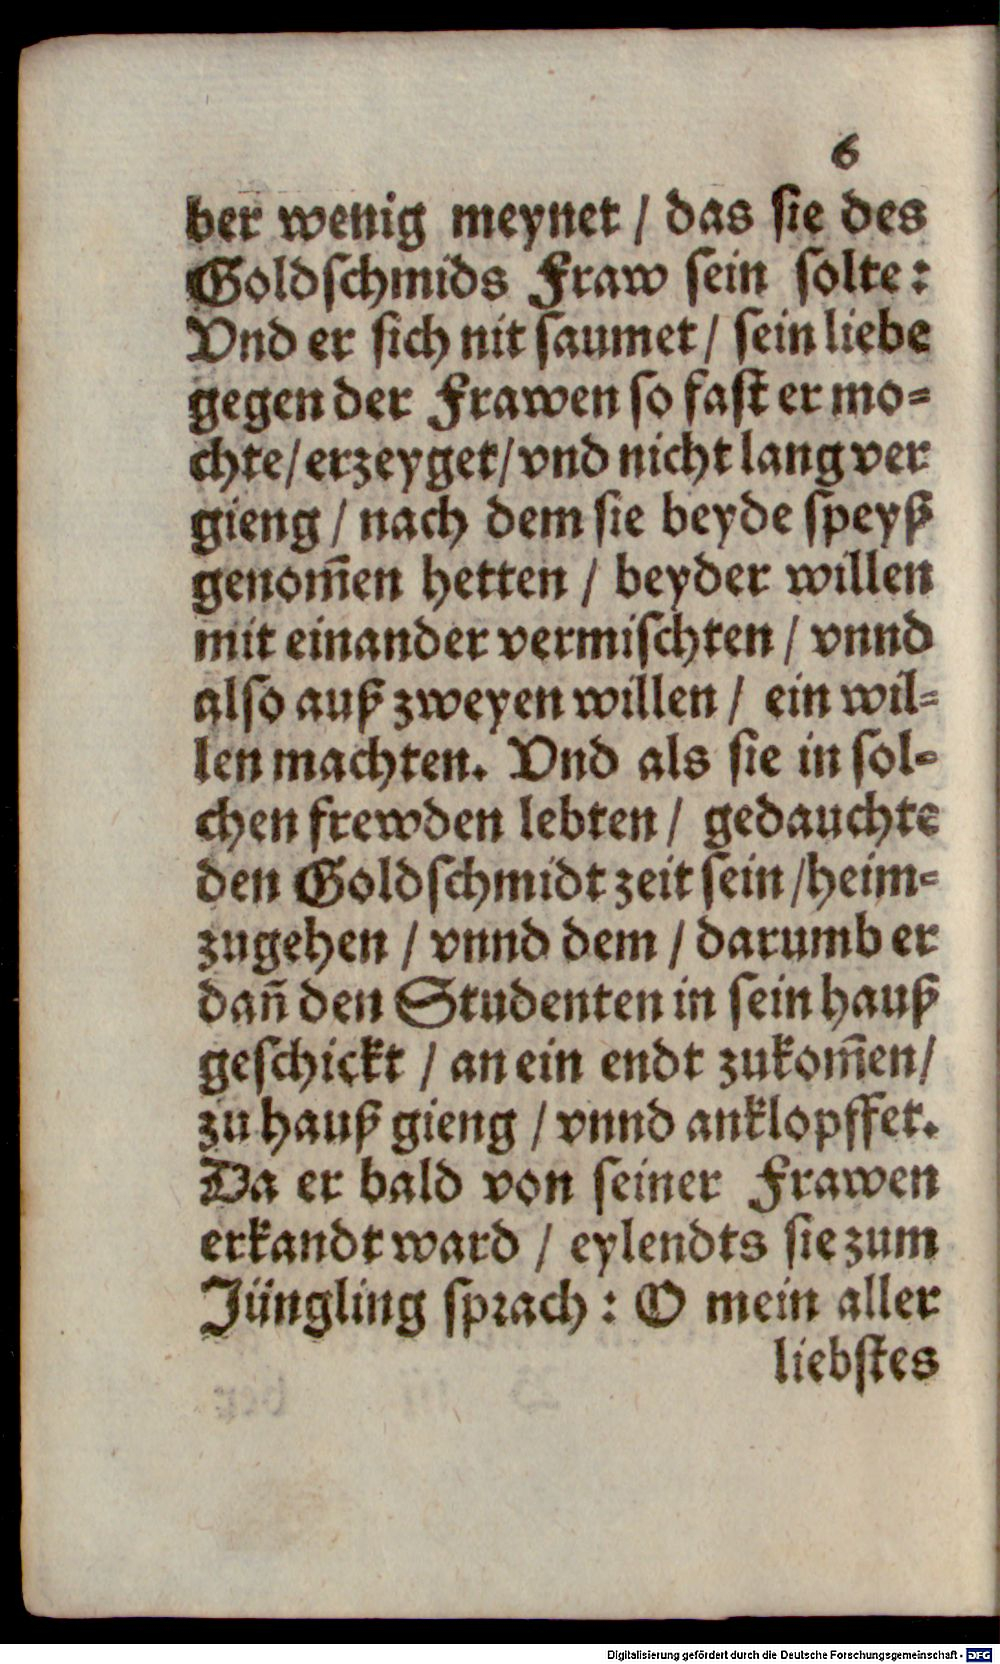 6
ber wenig meynet / das sie des
Goldschmids Fraw sein solte:
Vnd er sich nit saumet / sein liebe
gegen der Frawen so fast er mo-
chte / erzeyget / vnd nicht lang ver
gieng / nach dem sie beyde speyß
genom̃en hetten / beyder willen
mit einander vermischten / vnnd
also auß zweyen willen / ein wil-
len machten. Vnd als sie in sol-
chen frewden lebten / gedauchte
den Goldschmidt zeit sein / heim-
zugehen / vnnd dem / darumb er
dañ den Studenten in sein hauß
geschickt / an ein endt zukom̃en /
zu hauß gieng / vnnd anklopffet.
Da er bald von seiner Frawen
erkandt ward / eylendts sie zum
Jüngling sprach: O mein aller
liebstes
Digitalisierung gefördert durch die Deutsche Forschungsgemeinschaft - DFG